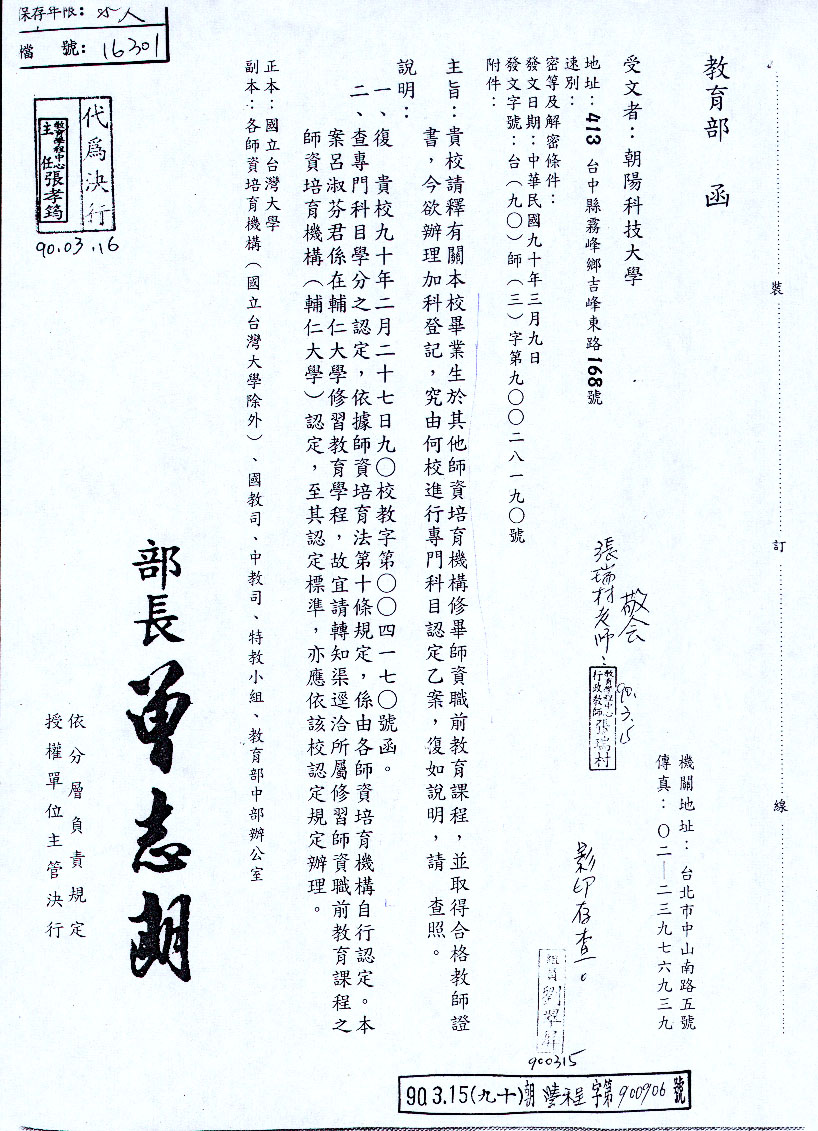 保存年限：
檔　號：16301
教育部　函
受文者：朝陽科技大學
地址：413 台中縣霧峰鄉吉峰東路168號
速別：
密等及解密條件：
發文日期：中華民國九十年三月九日
發文字號：台（九○）師（三）字第九○○二八一九○號
附件：
機關地址：台北市中山南路五號
傳真：○二—二三九七六九三九
主旨：貴校請釋有關本校畢業生於其他師資培育機構修畢師資職前教育課程，並取得合格教師證
書，今欲辦理加科登記，究由何校進行專門科目認定乙案，復如說明，請　查照。
說明：
一、復　貴校九十年二月二十七日九○校教字第○○四一七○號函。
二、查專門科目學分之認定，依據師資培育法第十條規定，係由各師資培育機構自行認定。本
案呂淑芬君係在輔仁大學修習教育學程，故宜請轉知渠逕洽所屬修習師資職前教育課程之
師資培育機構（輔仁大學）認定，至其認定標準，亦應依該校認定規定辦理。
正本：國立台灣大學
副本：各師資培育機構（國立台灣大學除外）、國教司、中教司、特教小組、教育部中部辦公室
部長曾志朗
依分層負責規定
授權單位主管決行
代為決行
教育學程中心
主任張孝筠
90.03.16
敬会
張瑞村老師：
教育學程中心
行政教師張瑞村
90.3.15
影印存查。
組員劉翠屏
900315
90.3.15(九十)朝 程字第900906號
裝
訂
線